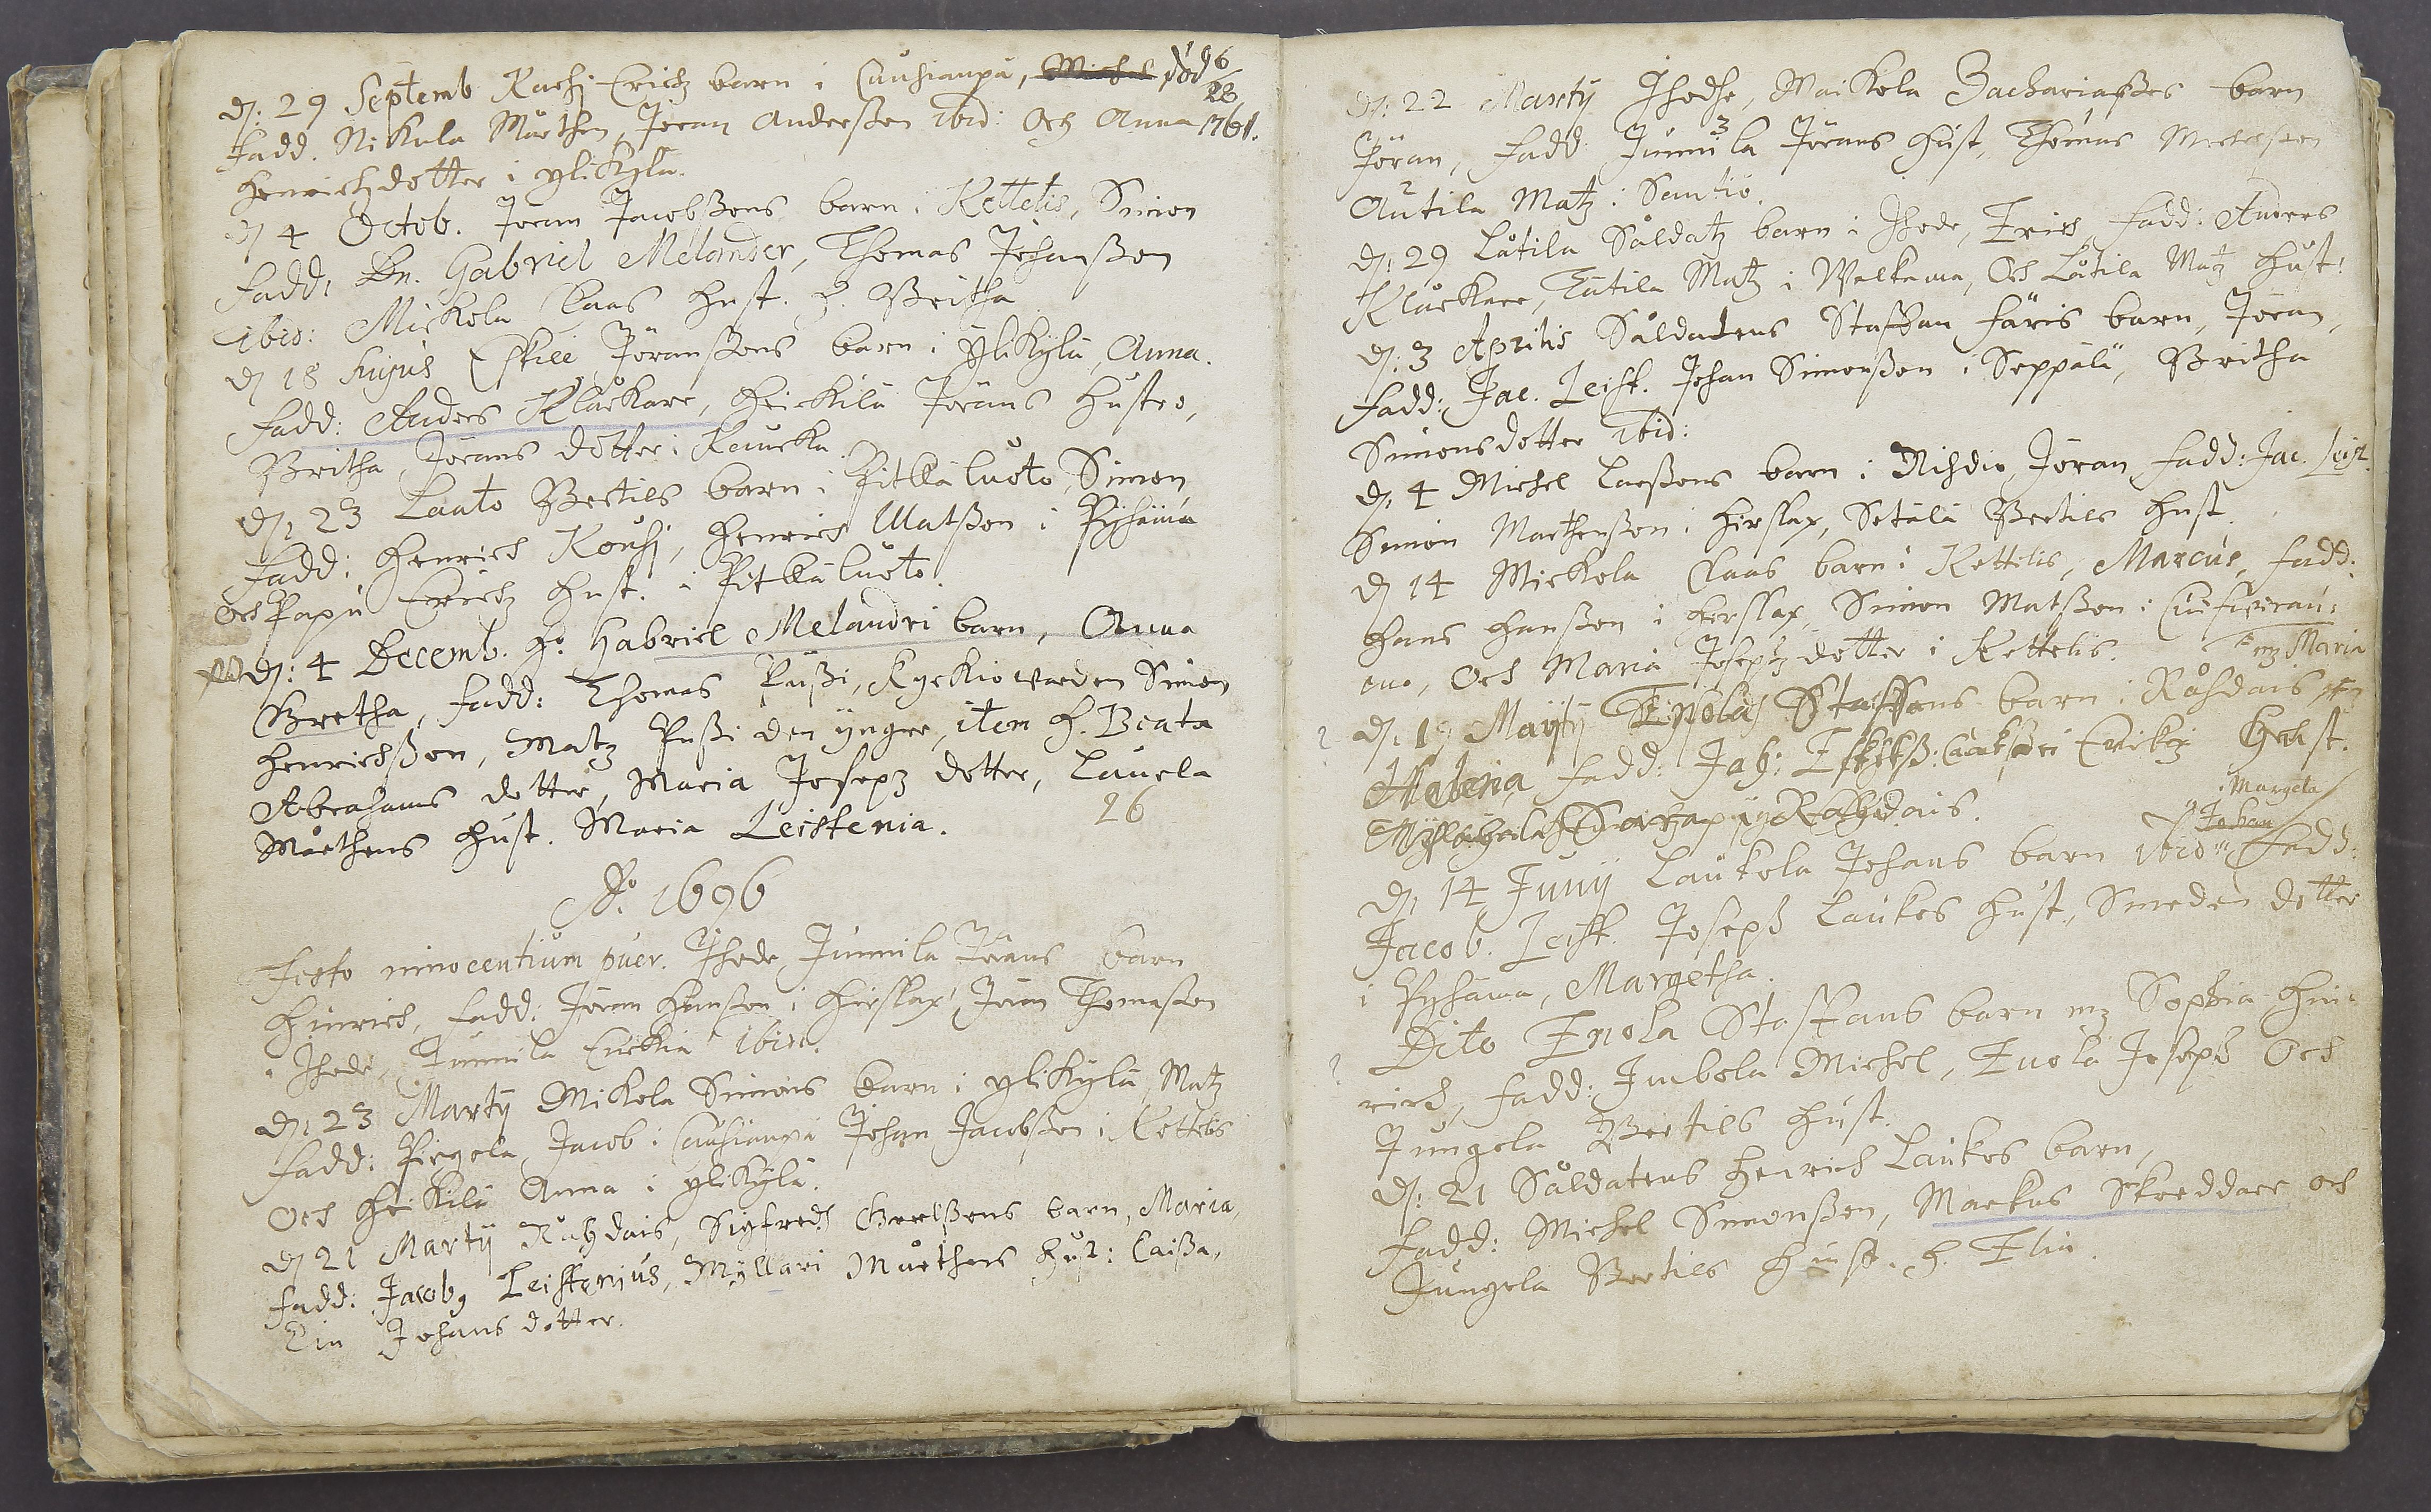 d: 29 Septemb Rachj Erichz barn i Cauhianpä, Michel död 6/28 1761.
Fadd. Nikula Mårthen, Jöran Anderßon ibid: Och Anna
Henrichzdotter i ylikylä.
d 4 Octob. Jöran Jacobßons barn i Kettelis, Simon
Fadd: Dn. Gabriel Melander, Thomas Johanßon
ibid: Mickola Claas Hust. H. Britha
d 18 hujus Eskill Jöranßons barn i ylikylä, Anna.
Fadd: Anders Klåckare, Heickilä Jörans Hustro,
Britha Jörans dotter i Kaucka
d: 23 Laato Bertils barn i Pitkäluoto, Simon
Fadd: Henrich Kouhj, Henrich Matßon i Pyhämä
och Papu Erichz Hust. i Pitkäluoto.
d: 4 Decemb. Hr Gabriel Melandri barn, Anna
Bretha, Fadd: Thomas Pußi, Kyrkiowärden Simon
Henrichßon, Matz Pußi den yngre, item H. Beata
Abrahams dotter, Maria Josephz dotter, Lauela
Mårthens Hust. Maria Leistenia.
26
Ao. 1696
Festo innocentium puer. Ihode Junnila Jörans barn
Hinrich, Fadd: Jöran Hanßon i Hirslax, Jöran Thomaßon
i Ihode, Junnila Erckia ibid.
d: 23 Martij Mikola Simons barn i ylikylä, Matz
Fadd: Pirgola Jacob i Cauhianpä Johan Jacobßon i Kettelis
Och Heikilä Anna i ylikylä.
d 21 Martij Råhdais, Sigfredh Grelßons barn, Maria,
Fadd: Jacobg Leistenius, Myllari Mårthens Hust: Caisa,
Elin Johans dotter.
d: 22 Martij Ihodhe, Maikola Zachariaßes barn
Jöran, Fadd: Junnila Jörans Hust, Thomas Michelßon
Autila Matz i Santio.
d: 29 Låtila Såldatz barn i Ihode, Erich, Fadd: Anders
Klåckare, Eutila Matz i Walkama, Och Låtila Matz Hust:
d: 3 Aprilis Såldatens Staffan Färis barn, Jöran,
Fadd: Jac. Leist. Johan Simonßon i Seppälä, Britha
Simonsdotter ibid:
d: 4 Michel Larßons barn i Nihdio Jöran, Fadd: Jac. Leist.
Simon Marthenßon i Hirslax, Setälä Bertils Hust.
d 14 Mickola Claas barn i Kettelis, Marcus, Fadd:
Hans Hanßon i Hirslax, Simon Matßon i
Och Maria Josephz dotter i Kettelis.
mz Maria
d: 19 Maÿ Enola Staffans barn i Råhdais
Helena Fadd: Erikz Hust.
i Råhdais.
Margeta
Johan
d: 14 Junij Laukola Johans barn ibid Fadd:
Jacob. Leist. Joseph Laukos Hust, Smeden dotter
i Pyhäma, Margetha.
Dito Enola Staffans barn mz Sophia Hin-
rich, Fadd: Imbola Michel, Enola Joseph Och
Jungola Bertils Hust.
d: 21 Såldatens Henrich Laukos barn,
Fadd: Michel Simonßon, Markus Skreddare och
Jungola Bertils Hust. H. Elin.